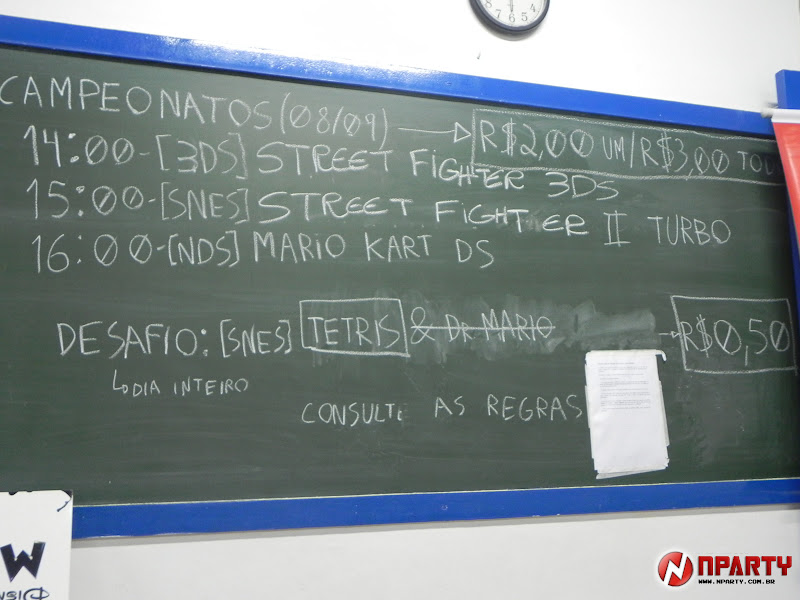 6 5
CAMPEONATOS (08/09) → R$2,00 UM/R$3,00 TOD
14:00-[3DS] STREET FIGHTER 3DS
15:00-[SNES] STREET FIGHTER II TURBO
16:00-[NDS] MARIO KART DS
DESAFIO: [SNES] TETRIS & DR MARIO → R$0,50
↳ DIA INTEIRO
CONSULTE AS REGRAS
W
NPARTY
WWW.NPARTY.COM.BR